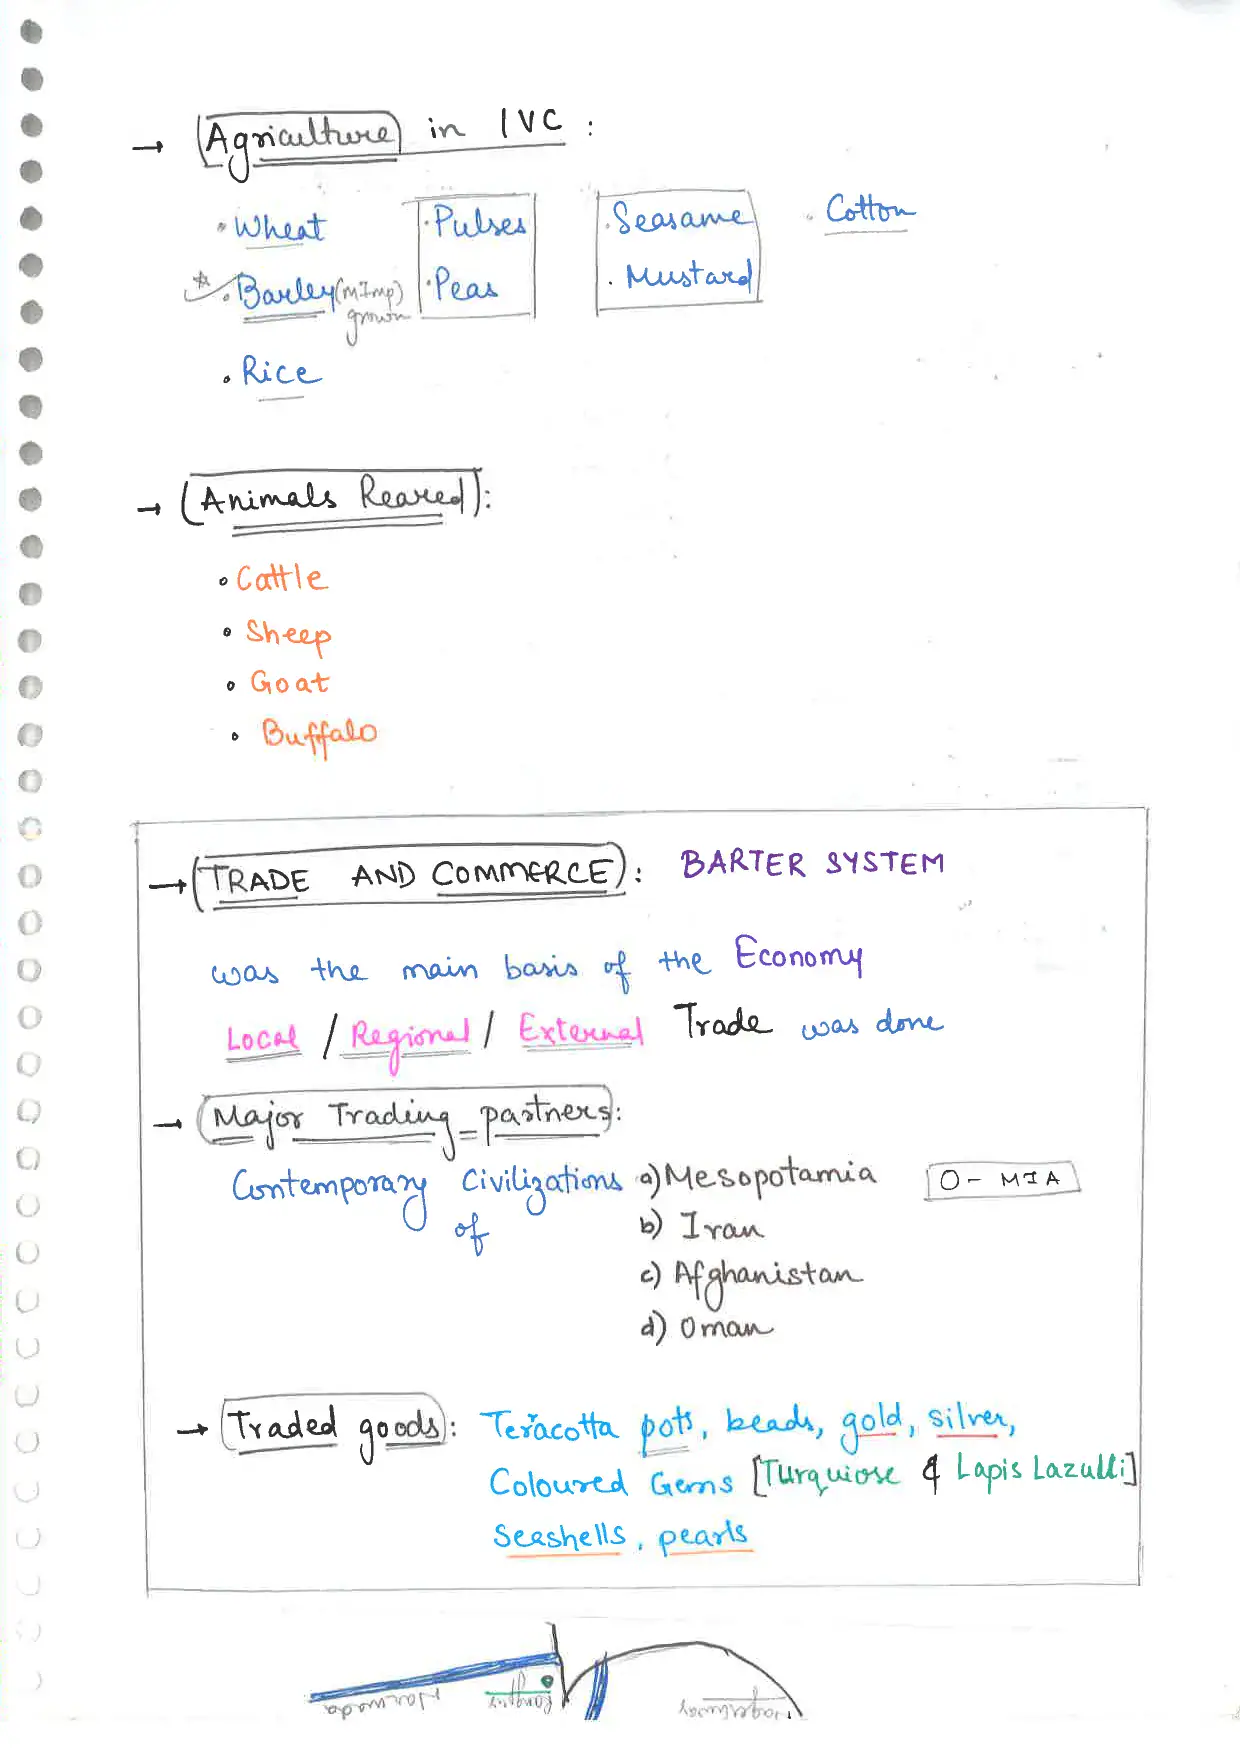 → Agriculture in IVC :
· Wheat · Pulses · Seasame · Cotton
· Barley (mImp) grown · Peas · Mustard
· Rice
→ Animals Reared :
• Cattle
• Sheep
• Goat
• Buffalo
→ TRADE AND COMMERCE : BARTER SYSTEM
was the main basis of the Economy
Local / Regional / External Trade was done
→ Major Trading partners :
Contemporary Civilizations of a) Mesopotamia O - MIA
b) Iran
c) Afghanistan
d) Oman
→ Traded goods : Teracotta pots, beads, gold, silver,
Coloured Gems [Turquiose & Lapis Lazulli]
Seashells, pearls
Narmada